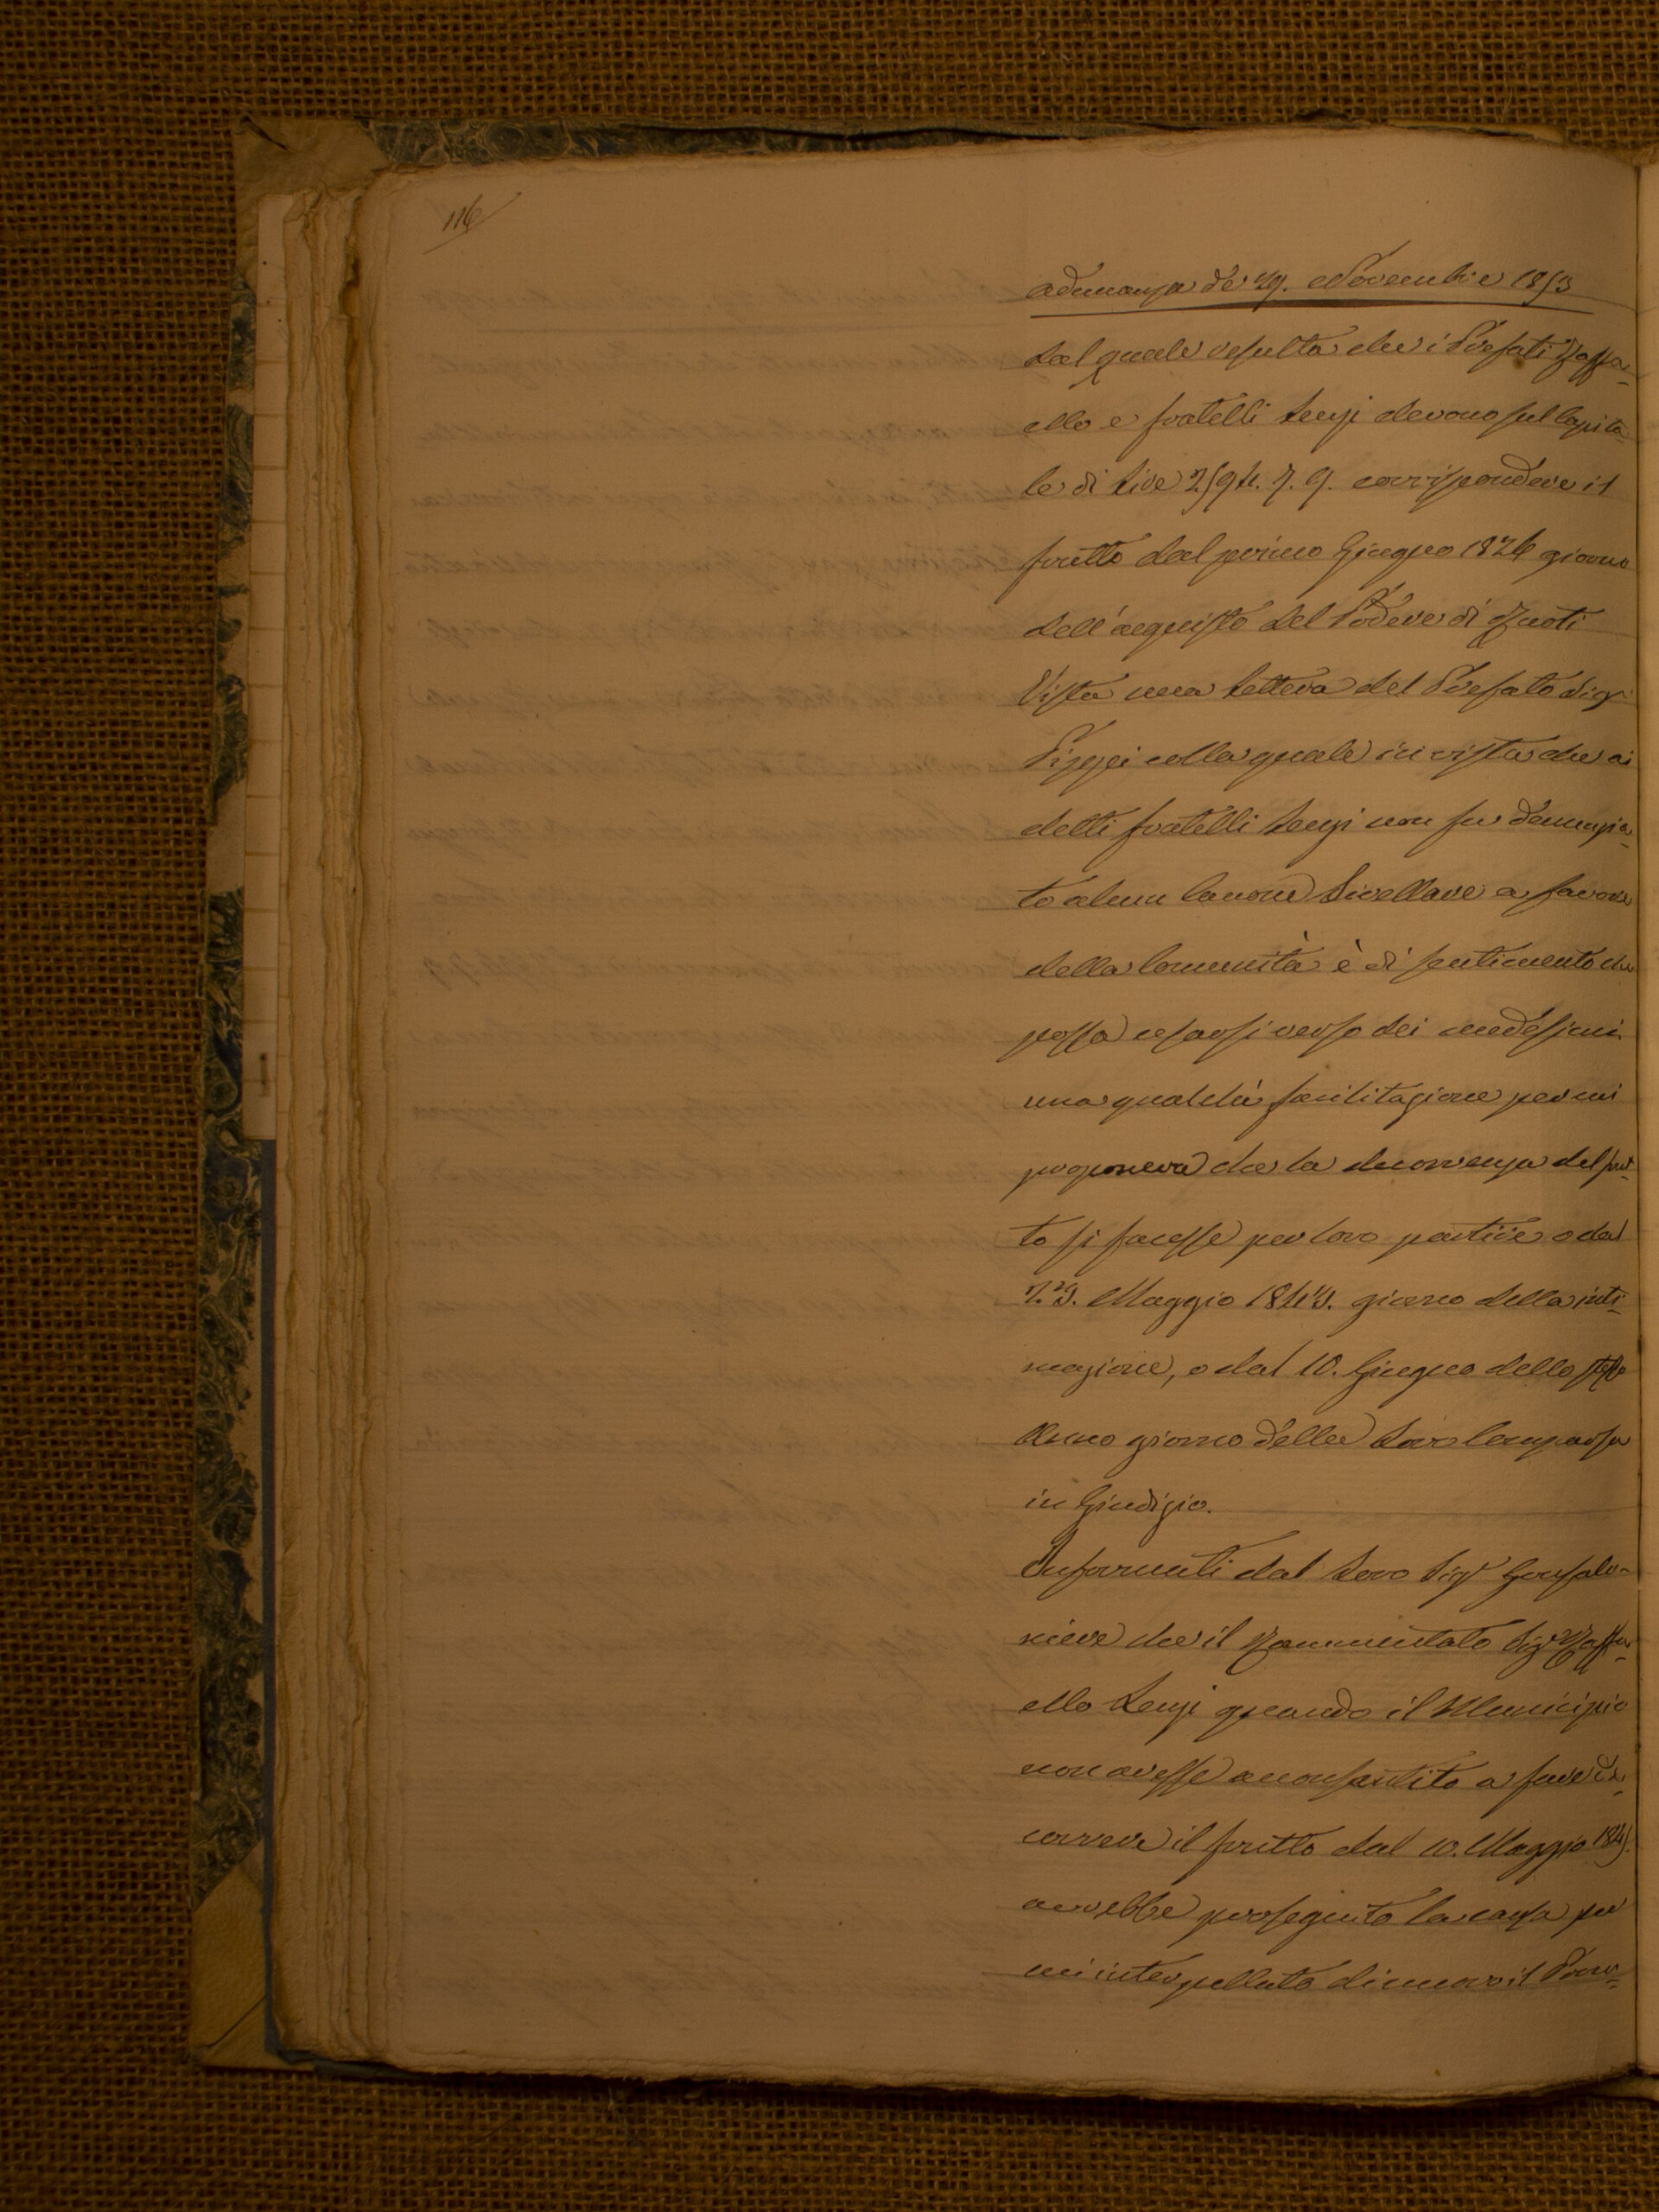 116
Adunanza de' 29. Novembre 1853
dal quale resulta che i Prefati Raffa-
ello e fratelli Lenzi devono sul Capita-
le di Lire 2594. 7. 9. corrispondere il
frutto dal primo Giugno 1826 giorno
dell'acquisto del Podere di Ruoti
Vista una Lettera del Prefato Sigr
Pippi colla quale in vista che ai
detti fratelli Lenzi non fu denunzia-
to alcun Canone Livellare a favore
della Comunità è di sentimento che
possa usarsi verso dei medesimi
una qualche facilitazione per cui
proponeva che la decorrenza del frut-
to si facesse per loro partire o dal
23. Maggio 1845. giorno della inti-
mazione, o dal 10. Giugno dello stesso
Anno giorno della Loro Comparsa
in Giudizio.
Informati dal Loro Sigr Gonfalo-
niere che il Rammentato Sigr Raffa-
ello Lenzi quando il Municipio
non avesse acconsentito a fare de-
correre il frutto dal 10. Maggio 1845.
avrebbe proseguito la causa per
cui interpellato di nuovo il Proc-